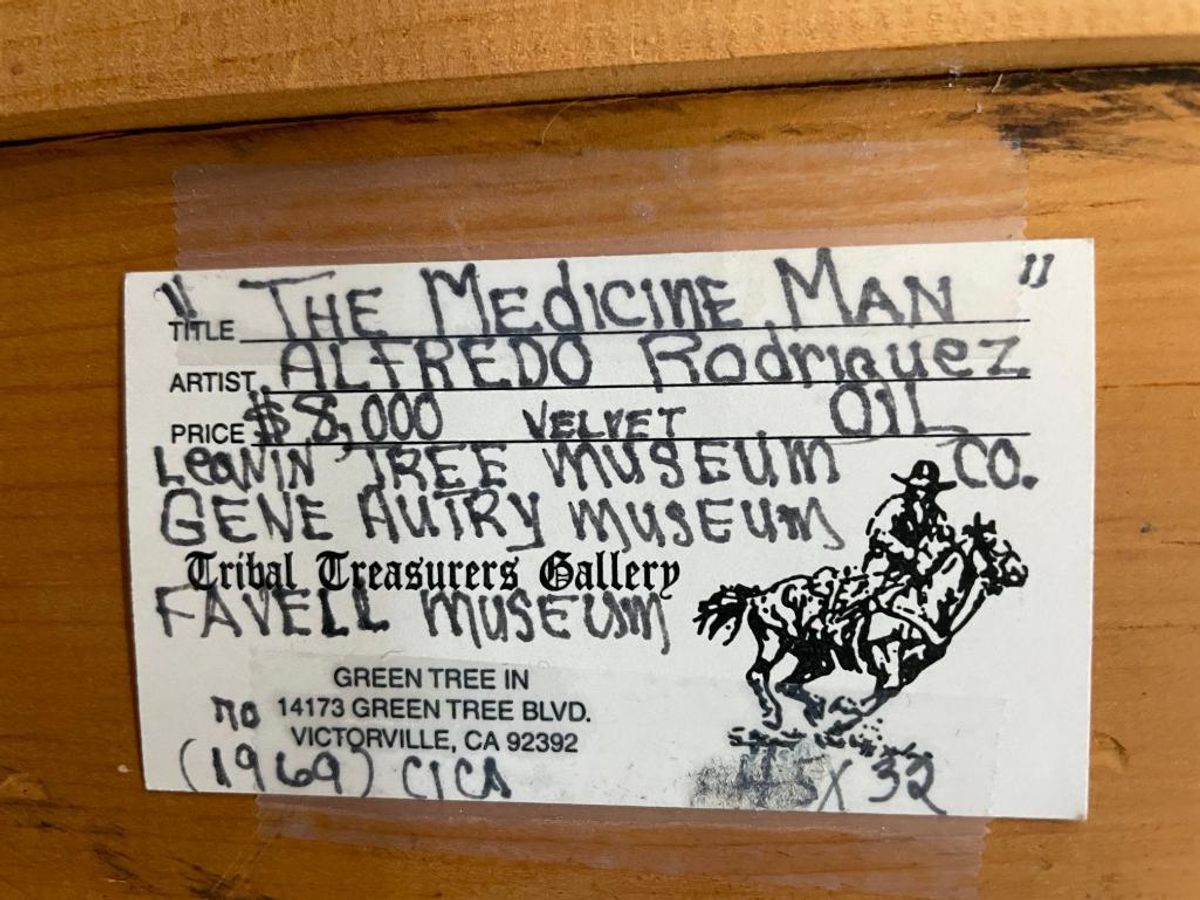 " THE MEdICINE MAN "
TITLE
ARTIST ALFREDO Rodriguez
PRICE $8,000 VELVET OIL
LeaNIN TREE MUSEUM CO.
GENE AUTRY MUSEUM
Tribal Treasurers Gallery
FAVELL MUSEUM
GREEN TREE IN
14173 GREEN TREE BLVD.
VICTORVILLE, CA 92392
(1969) CICA
X 32